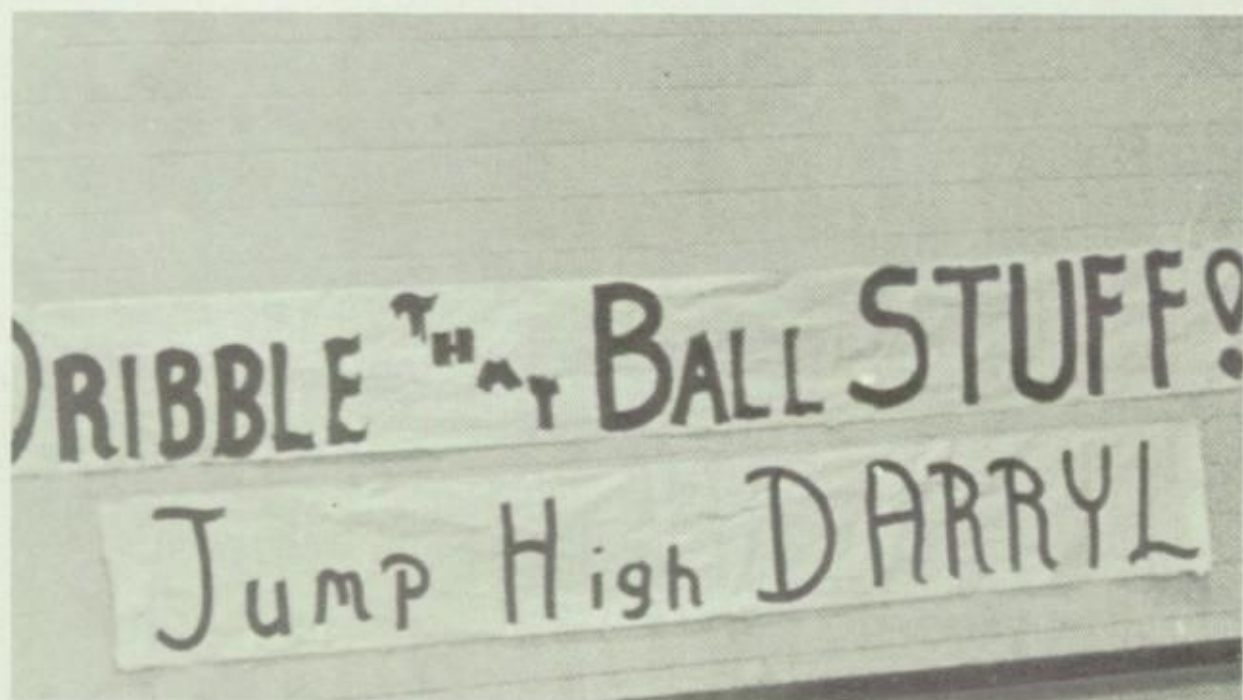 DRIBBLE THAT BALL STUFF!
Jump High DARRYL